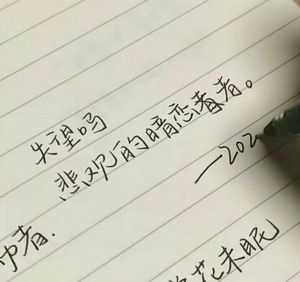 失望吗
悲观的暗恋者。
—202
者.
花未眠